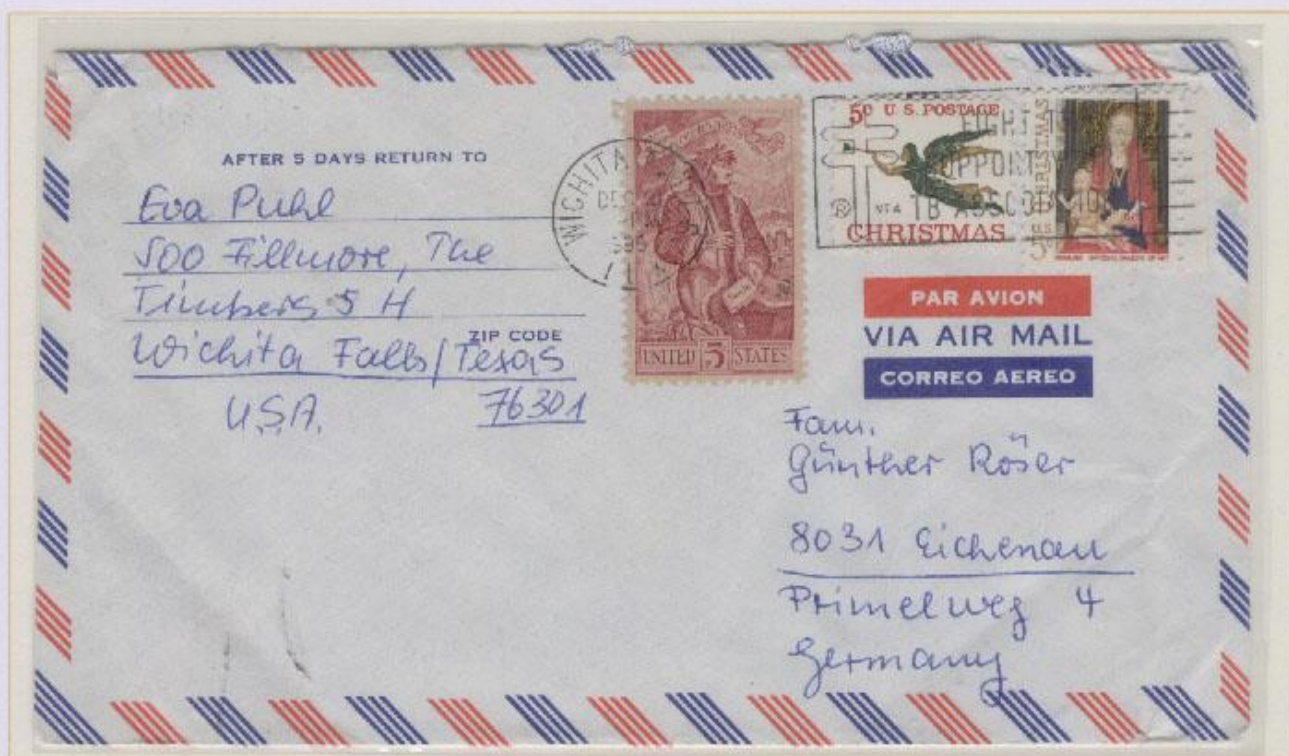 AFTER 5 DAYS RETURN TO
Eva Puhl
500 Fillmore, The
Timbers 5 H
ZIP CODE
Wichita Falls/Texas
U.S.A. 76301
WICHITA
DEC
UNITED 5 STATES
5c U.S. POSTAGE
CHRISTMAS
CHRISTMAS
FIGHT TB
TB ASSOCIATION
PAR AVION
VIA AIR MAIL
CORREO AEREO
Fam.
Günther Röser
8031 Eichenau
Primelweg 4
Germany